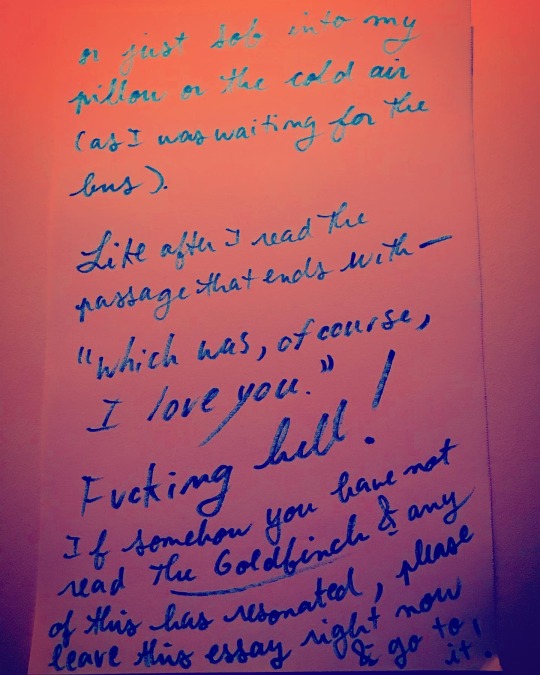 or just sob into my
pillow or the cold air
(as I was waiting for the
bus).
Like after I read the
passage that ends with—
"Which was, of course,
I love you."
Fucking hell!
If somehow you have not
read The Goldfinch & any
of this has resonated, please
leave this essay right now
& go to
it!